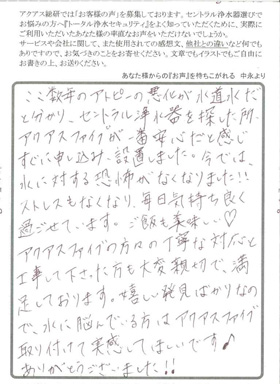 アクアス総研では「お客様の声」を募集しております。セントラル浄水器選びで
お悩みの方へ『トータル浄水セキュリティ』をよく知っていただくために、実際に
ご利用いただいたあなた様の率直なお声をいただけないでしょうか。
サービスや会社に関して、また使用されての感想文、他社との違いなど何でも
ありですので、お気づきのことをお寄せください。文章でもイラストでもご自由に
お書きの上、お送りください。
あなた様からの『お声』を待ちこがれる 中永より
ここ数年のアトピーの悪化が水道水だ
と分かり、セントラル浄化器を探した所、
アクアスファイブが一番安心だと感じ
すぐに申し込み、設置しました。今では、
水に対する恐怖がなくなりました!!
ストレスもなくなり、毎日気持ち良く
過ごせています。ご飯も美味しい♡
アクアスファイブの方々の丁寧な対応と
工事して下さった方も大変親切で、満
足しております。嬉しい発見ばかりなの
で、水に悩んでいる方はアクアスファイブ
取り付けて実感してほしいです♪
ありがとうございました!!